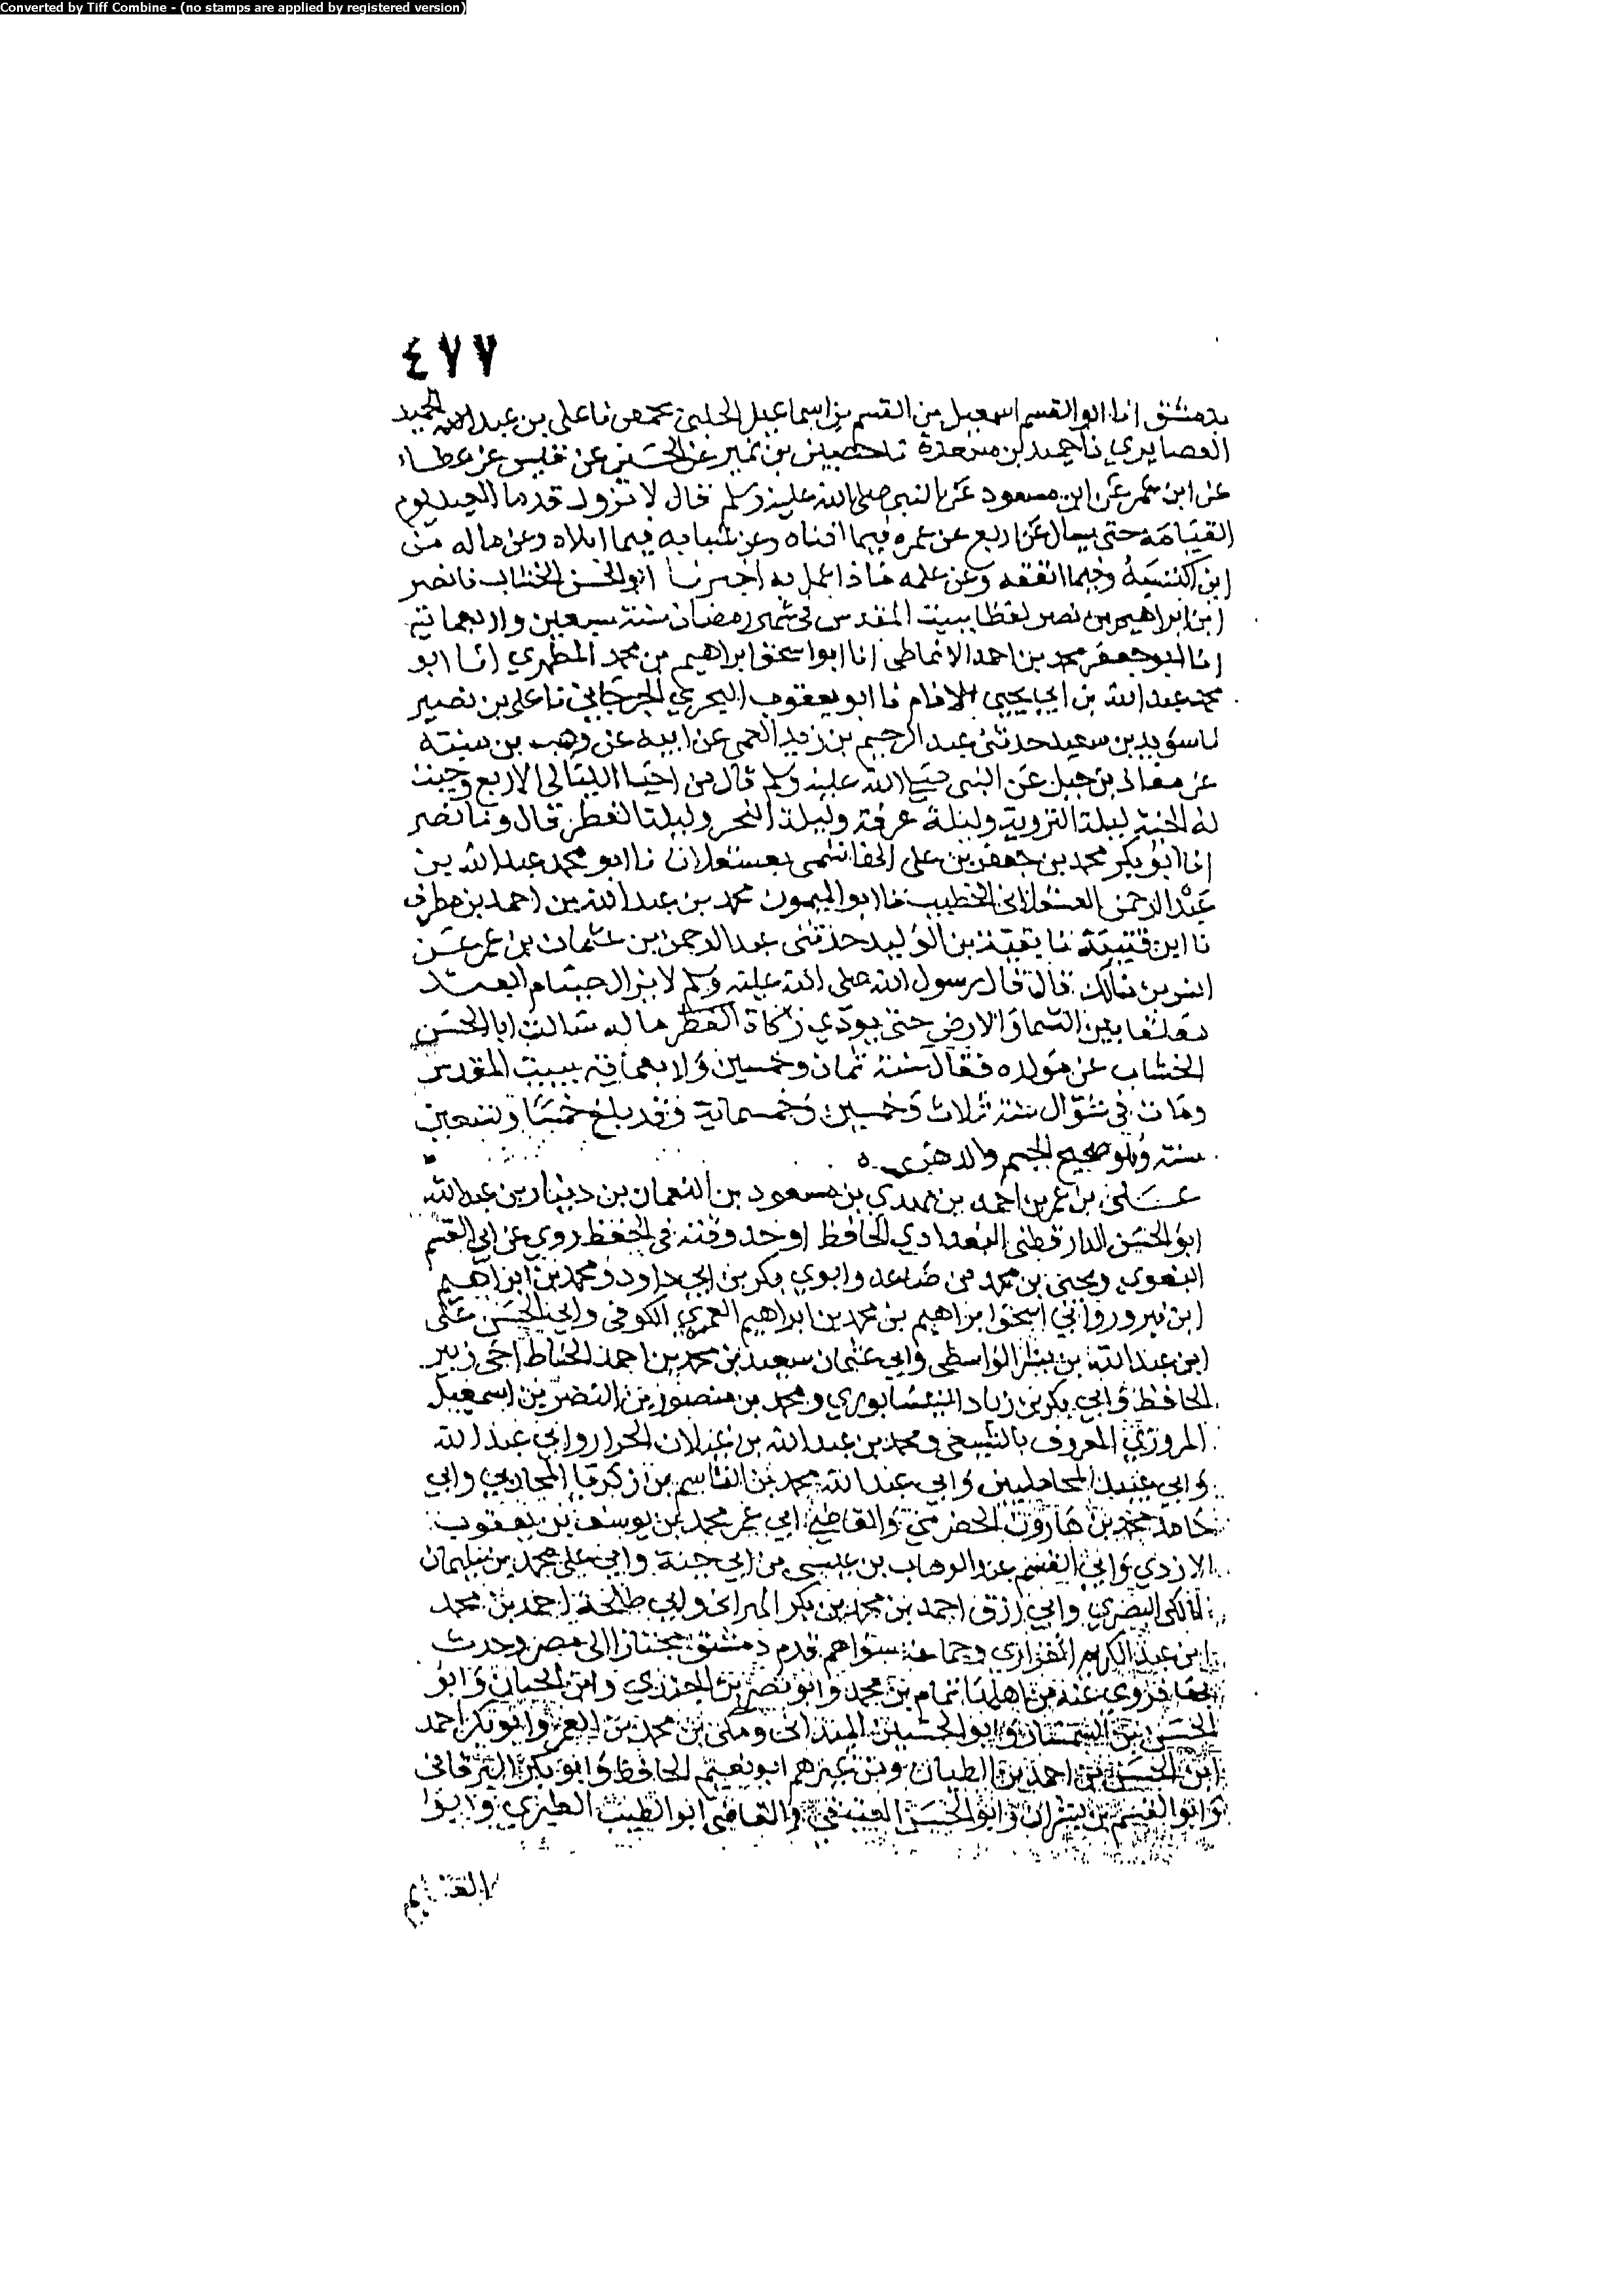 Converted by Tiff Combine - (no stamps are applied by registered version)
٤٧٧
بدمشق انا ابو القسم اسمعيل بن القسم بن اسماعيل الحلبي بحمص نا علي بن عبد الحميد
الغضايري نا حميد بن مسعدة نا حصين بن نمير عن الحسين عن قيس عن عطاء
عن ابن عمر عن ابن مسعود عن النبي صلى الله عليه وسلم قال لا تزول قدما العبد يوم
القيامة حتى يسال عن اربع عن عمره فيما افناه وعن شبابه فيما ابلاه وعن ماله من
اين اكتسبه وفيما انفقه وعن علمه ماذا عمل به اخبرنا ابو الحسن الخشاب نا نصر
ابن ابراهيم بن نصر لفظا ببيت المقدس في شهر رمضان سنة سبعين واربعماية
انا ابو جعفر محمد بن احمد الانماطي انا ابو اسحق ابراهيم بن محمد المطهري انا ابو
محمد عبد الله بن ابي يحيى الامام نا ابو يعقوب البحري الجرجاني نا علي بن نصير
نا سويد بن سعيد حدثني عبد الرحيم بن زيد العمي عن ابيه عن وهب بن منبه
عن معاذ بن جبل عن النبي صلى الله عليه وسلم قال من احيا الليالي الاربع وجبت
له الجنة ليلة التروية وليلة عرفة وليلة النحر وليلة الفطر قال ونا نصر
انا ابو بكر محمد بن جعفر بن علي بعسقلان نا ابو محمد عبد الله بن
عبد الرحمن العسقلاني الخطيب نا ابو الميمون محمد بن عبد الله بن احمد بن مطرف
نا ابن قتيبة نا بقية بن الوليد حدثني عبد الرحمن بن عثمان بن عمر عن
انس بن مالك قال قال رسول الله صلى الله عليه وسلم لا يزال صيام العبد
معلقا بين السما والارض حتى يودي زكاة الفطر ماله سالت ابا الحسن
الخشاب عن مولده فقال سنة ثمان وخمسين واربعماية ببيت المقدس
ومات في شوال سنة ثلاث وخمسين وخمسماية وقد بلغ خمسا وتسعين
سنة وهو صحيح الجسم والذهن
علي بن عمر بن احمد بن مهدي بن مسعود بن النعمان بن دينار بن عبد الله
ابو الحسن الدارقطني البغدادي الحافظ اوحد وقته في الحفظ روى عن ابي القسم
البغوي ويحيى بن محمد بن صاعد وابوي بكر بن ابي داود ومحمد بن ابراهيم
ابن نيروز وابي اسحق ابراهيم بن محمد بن ابراهيم العمري الكوفي وابي الحسن علي
ابن عبد الله بن مبشر الواسطي وابي عثمان سعيد بن محمد بن احمد الحناط اخي زبير
الحافظ وابي بكر بن زياد النيسابوري ومحمد بن منصور بن النضر بن اسمعيل
المروزي المعروف بالشيعي ومحمد بن عبد الله بن غيلان الخزاز وابي عبد الله
وابي عبيد المحامليين وابي عبد الله محمد بن القاسم بن زكريا المحاربي وابي
حامد محمد بن هارون الحضرمي والقاضي ابي عمر محمد بن يوسف بن يعقوب
الازدي وابي القسم عبد الوهاب بن عيسى بن ابي حية وابي علي محمد بن سليمان
المالكي البصري وابي رزق احمد بن محمد بن بكر الهزاني وابي طلحة احمد بن محمد
ابن عبد الكريم الفزاري وجماعة سواهم قدم دمشق مجتازا الى مصر وحدث
بها فروى عنه من اهلها تمام بن محمد وابو نصر بن الجندي وابن الجبان وابو
الحسن بن السمسار وابو الحسين الميداني ومكي بن محمد بن الغمر وابو بكر احمد
ابن الحسن بن احمد بن الطيان ومن غيرهم ابو نعيم الحافظ وابو بكر البرقاني
وابو القسم بن بشران وابو الحسن العتيقي والقاضي ابو الطيب الطبري وابو